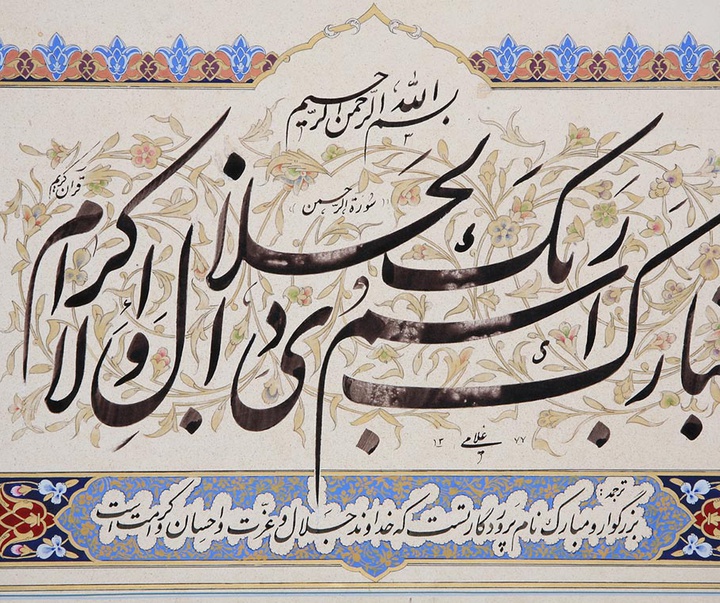 بسم الله الرحمن الرحیم
قرآن کریم
سورة الرحمن
تبارک اسم ربک ذی الجلال و الاکرام
غلامی ۱۳۷۷
ترجمه:
بزرگوار و مبارک نام پروردگارتست که خداوند جلال و عزّت و احسان و کرامت است